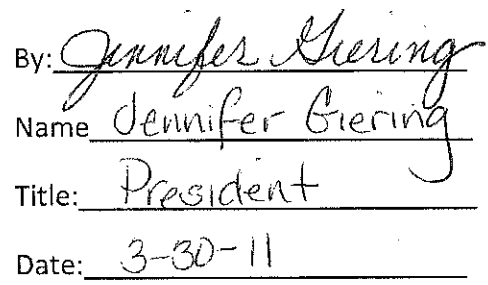 By: Jennifer Giering
Name Jennifer Giering
Title: President
Date: 3-30-11